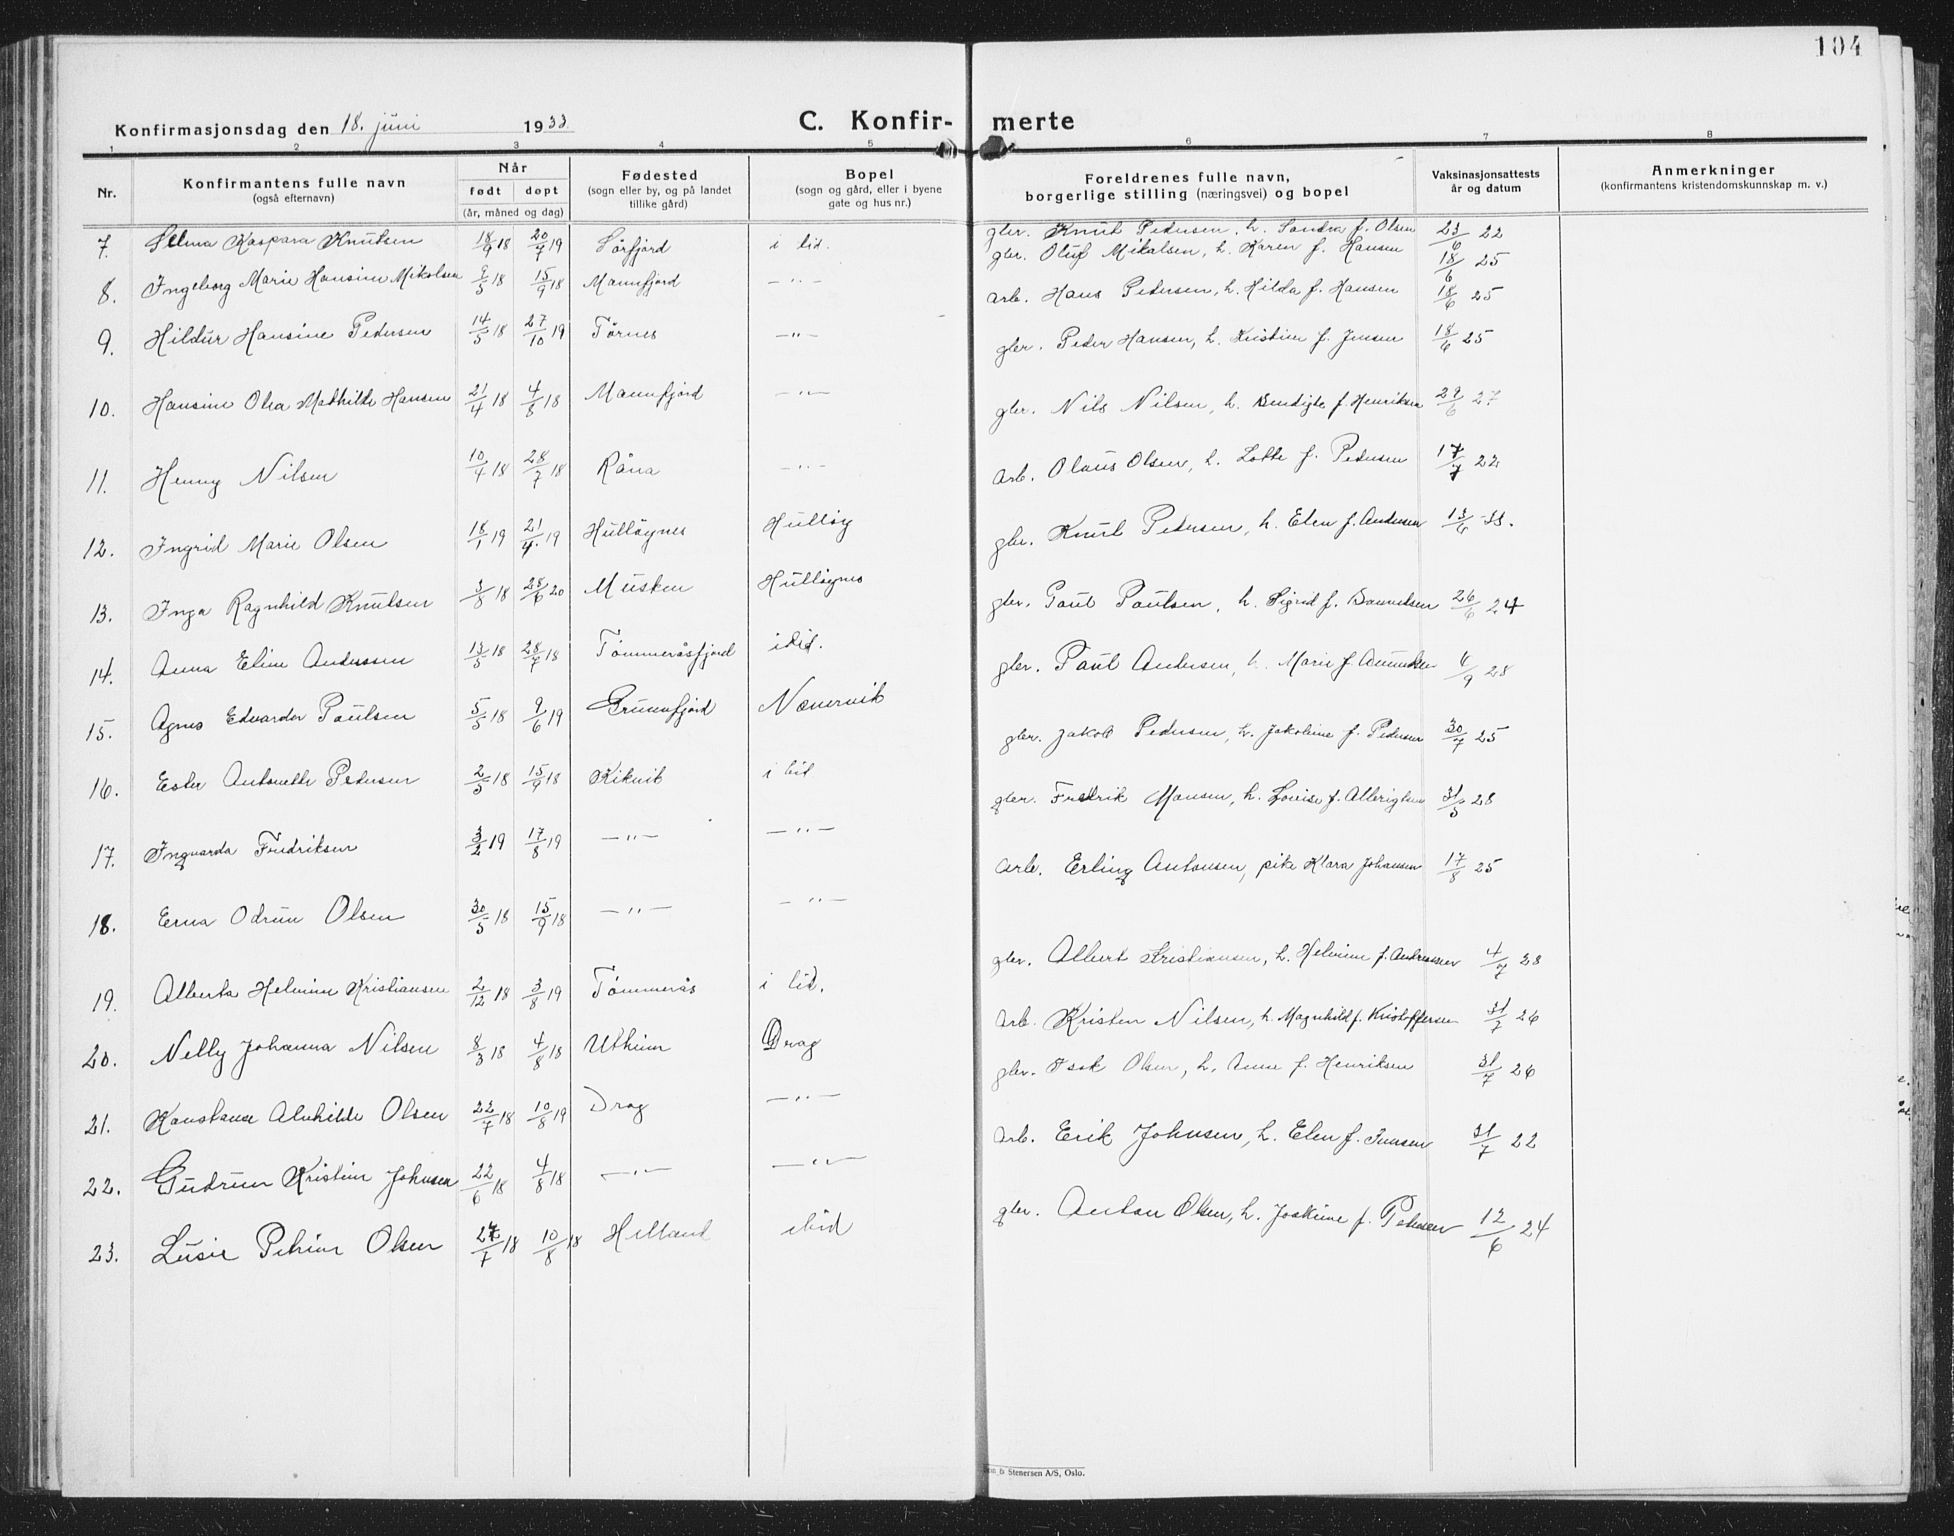 104
Konfirmasjonsdag den 18. juni 1933
C. Konfir- merte
1 2 3 4 5 6 7 8
Nr.
Konfirmantens fulle navn
(også efternavn)
Når
født døpt
(år, måned og dag)
Fødested
(sogn eller by, og på landet
tillike gård)
Bopel
(sogn og gård, eller i byene
gate og hus nr.)
Foreldrenes fulle navn,
borgerlige stilling (næringsvei) og bopel
Vaksinasjonsattests
år og datum
Anmerkninger
(konfirmantens kristendomskunnskap m. v.)
7. Selma Kaspara Knutsen 18/9 18 20/7 19 Sörfjord i bid. gbr. Knut Pedersen, h. Sandra f. Olsen 23/6 22
8. Ingeborg Marie Hansine Mikalsen 9/5 18 15/9 18 Mannfjord —"— gbr. Oluf Mikalsen, h. Karen f. Hansen 18/6 25
9. Hildur Hansine Pedersen 14/5 18 27/10 19 Tørnes —"— arb. Hans Pedersen, h. Hilda f. Hansen 18/6 25
10. Hansine Olea Mathilde Hansen 21/4 18 4/8 18 Mannfjord —"— gbr. Peder Hansen, h. Kristine f. Jensen 18/6 25
11. Henny Nilsen 10/4 18 28/7 18 Råna —"— gbr. Nils Nilsen, h. Bendigte f. Henriksen 29/6 27
12. Ingrid Marie Olsen 18/1 19 21/4 19 Hulløynes Hulløy arb. Olaus Olsen, h. Lotte f. Pedersen 17/7 22
13. Inga Ragnhild Knutsen 3/8 18 28/6 20 Musken Hulløynes gbr. Knut Pedersen, h. Elen f. Andersen 13/6 33.
14. Anna Eline Anderssen 13/5 18 28/7 18 Tömmeråsfjord ibid. gbr. Paul Paulsen, h. Sigrid f. 26/6 24
15. Agnes Edvarda Paulsen 5/5 18 9/6 19 Grunnfjord Nævervik gbr. Paul Andersen, h. Marie f. Amundsen 4/9 28
16. Ester Antonette Pedersen 2/5 18 15/9 18 Kikvik i bid gbr. Jakob Pedersen, h. Jakobine f. Pedersen 30/7 25
17. Ingvarda Fredriksen 3/2 19 17/8 19 —"— —"— gbr. Fredrik Monsen, h. Lovise f. 31/5 28
18. Erna Odrun Olsen 30/5 18 15/9 18 —"— —"— arb. Erling Antonsen, pike Klara Johansen 17/8 25
19. Alberta Helmine Kristiansen 2/12 18 3/8 19 Tömmerås i bid. gbr. Albert Kristiansen, h. Helmine f. Andreassen 4/7 28
20. Nelly Johanna Nilsen 8/3 18 4/8 18 Utheim Drag arb. Kristen Nilsen, h. Magnhild f. Kristoffersen 31/7 26
21. Konstanse Alvhilde Olsen 22/7 18 10/8 19 Drag —"— gbr. Isak Olsen, h. Anne f. Henriksen 31/7 26
22. Gudrun Kristine Johnsen 22/6 18 4/8 18 —"— —"— arb. Erik Johnsen, h. Elen f. Jensen 31/7 22
23. Lusie Petrine Olsen /7 18 10/8 18 Helland ibid gbr. Anton Olsen, h. Joakime f. Pedersen 12/6 24
Stenersen A/S, Oslo.